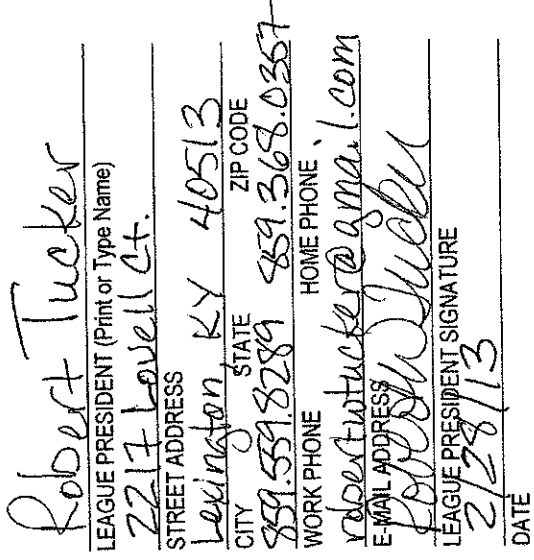 Robert Tucker
LEAGUE PRESIDENT (Print or Type Name)
2217 Lovell Ct.
STREET ADDRESS
Lexington KY 40513
CITY STATE ZIP CODE
859.559.8289 859.368.0357
WORK PHONE HOME PHONE
robertwtucker@gmail.com
E-MAIL ADDRESS
LEAGUE PRESIDENT SIGNATURE
2/28/13
DATE